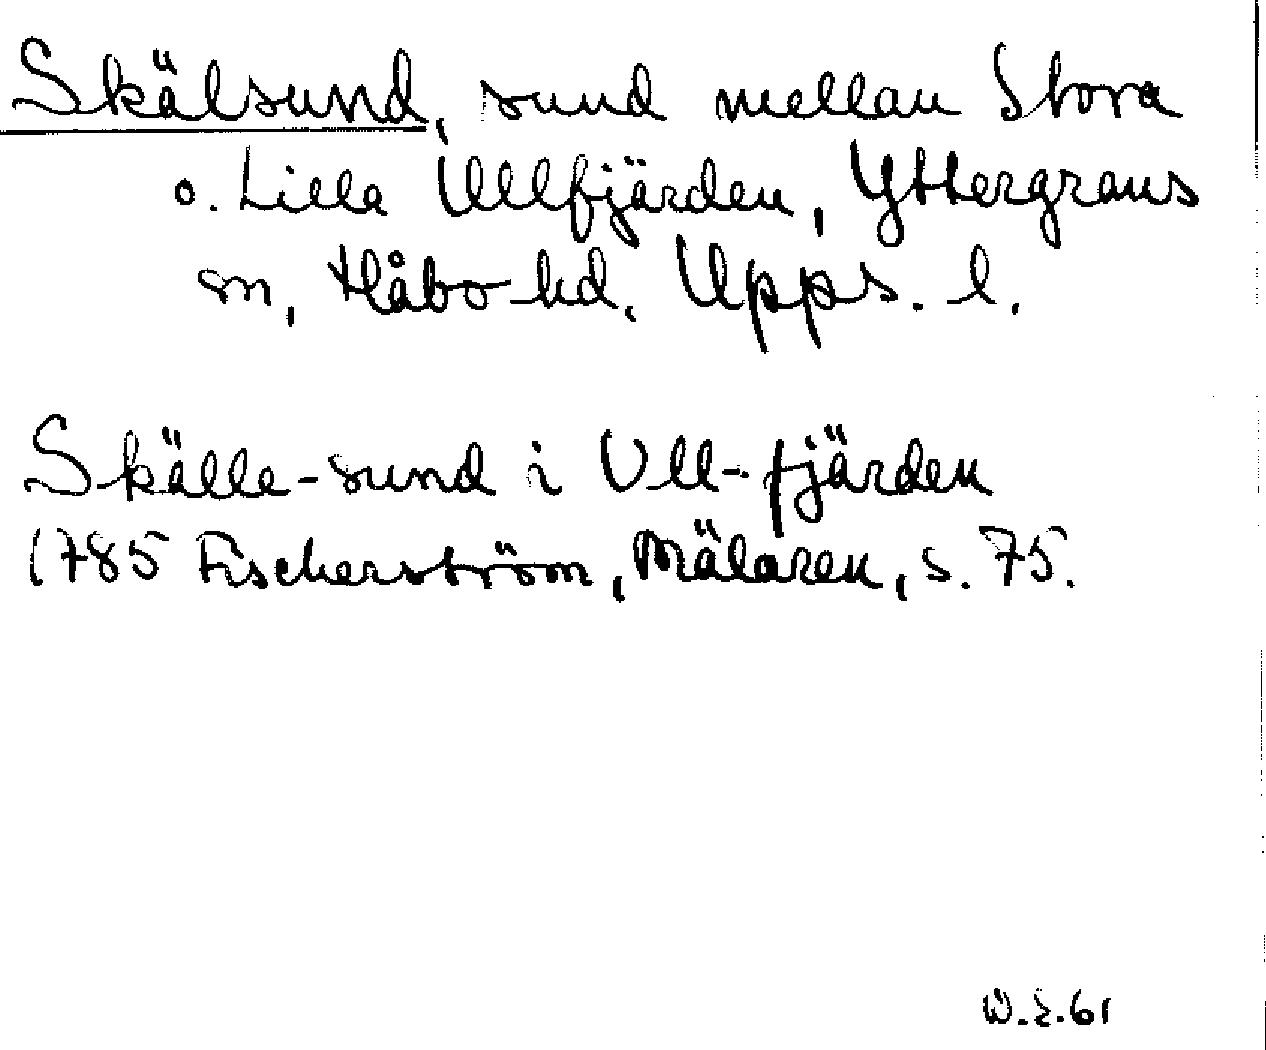 Skälsund, sund mellan Stora
o. Lilla Ullfjärden, Yttergrans
sn, Håbo hd. Upps. l.
Skälle-sund i Ull-fjärden
1785 Fischerström, Mälaren, s. 75.
W.E.61